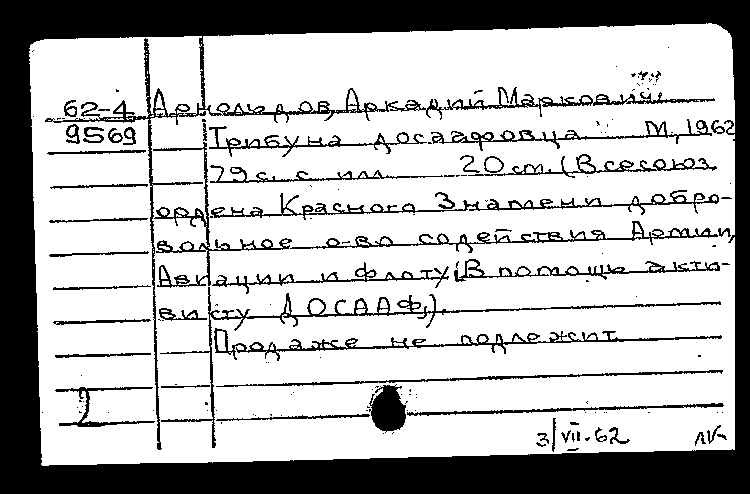 62-4 Арнольдов, Аркадий Маркович.
9569 Трибуна досаафовца М., 1962
79 с. с илл 20 см. (Всесоюз.
ордена Красного Знамени добро-
вольное о-во содействия Армии,
Авиации и флоту. (В помощь акти-
висту ДОСААФ,).
Продаже не подлежит
2
3/VII-62